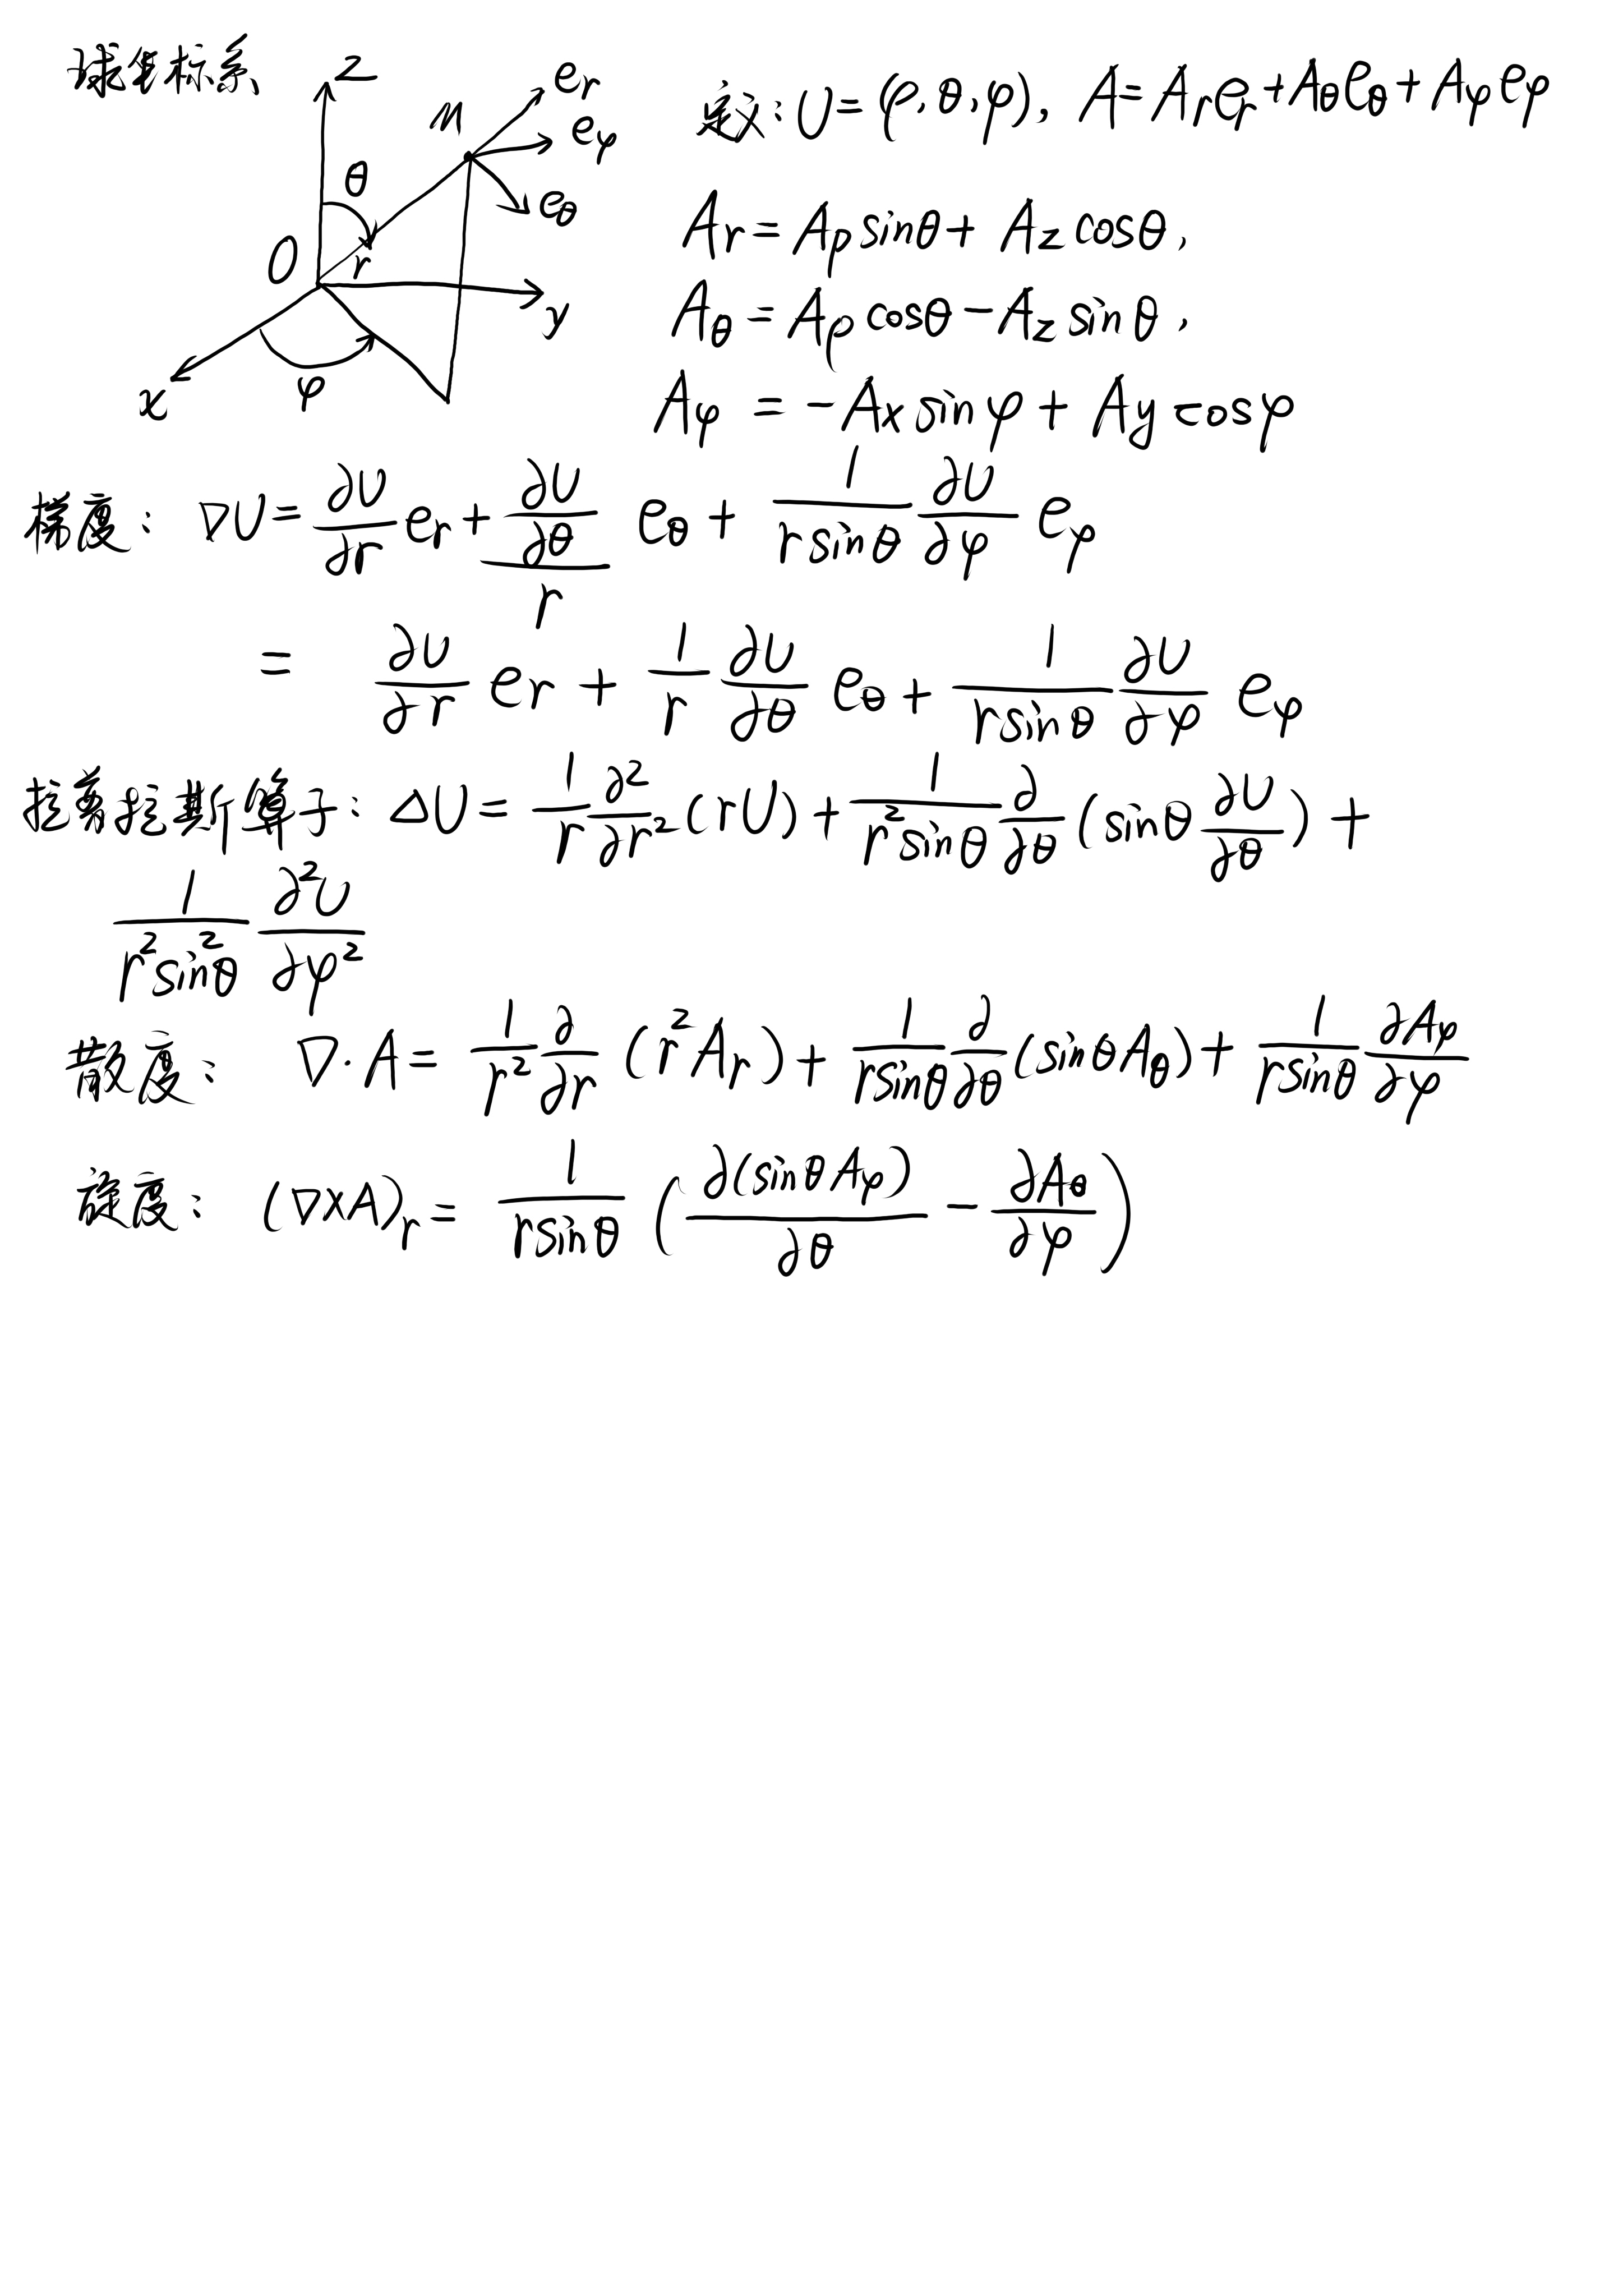 球坐标系
z
M
e_r
e_φ
e_θ
θ
O
r
y
x
φ
定义: U = (ρ, θ, φ), A = A_r e_r + A_θ e_θ + A_φ e_φ
A_r = A_ρ sinθ + A_z cosθ,
A_θ = A_ρ cosθ − A_z sinθ,
A_φ = −A_x sinφ + A_y cosφ
梯度: ∇U = ∂U/∂r e_r + (∂U/∂θ)/r e_θ + 1/(r sinθ) ∂U/∂φ e_φ
= ∂U/∂r e_r + 1/r ∂U/∂θ e_θ + 1/(r sinθ) ∂U/∂φ e_φ
拉普拉斯算子: ΔU = 1/r ∂²/∂r² (rU) + 1/(r² sinθ) ∂/∂θ (sinθ ∂U/∂θ) +
1/(r² sin²θ) ∂²U/∂φ²
散度: ∇·A = 1/r² ∂/∂r (r² A_r) + 1/(r sinθ) ∂/∂θ (sinθ A_θ) + 1/(r sinθ) ∂A_φ/∂φ
旋度: (∇×A)_r = 1/(r sinθ) (∂(sinθ A_φ)/∂θ − ∂A_θ/∂φ)